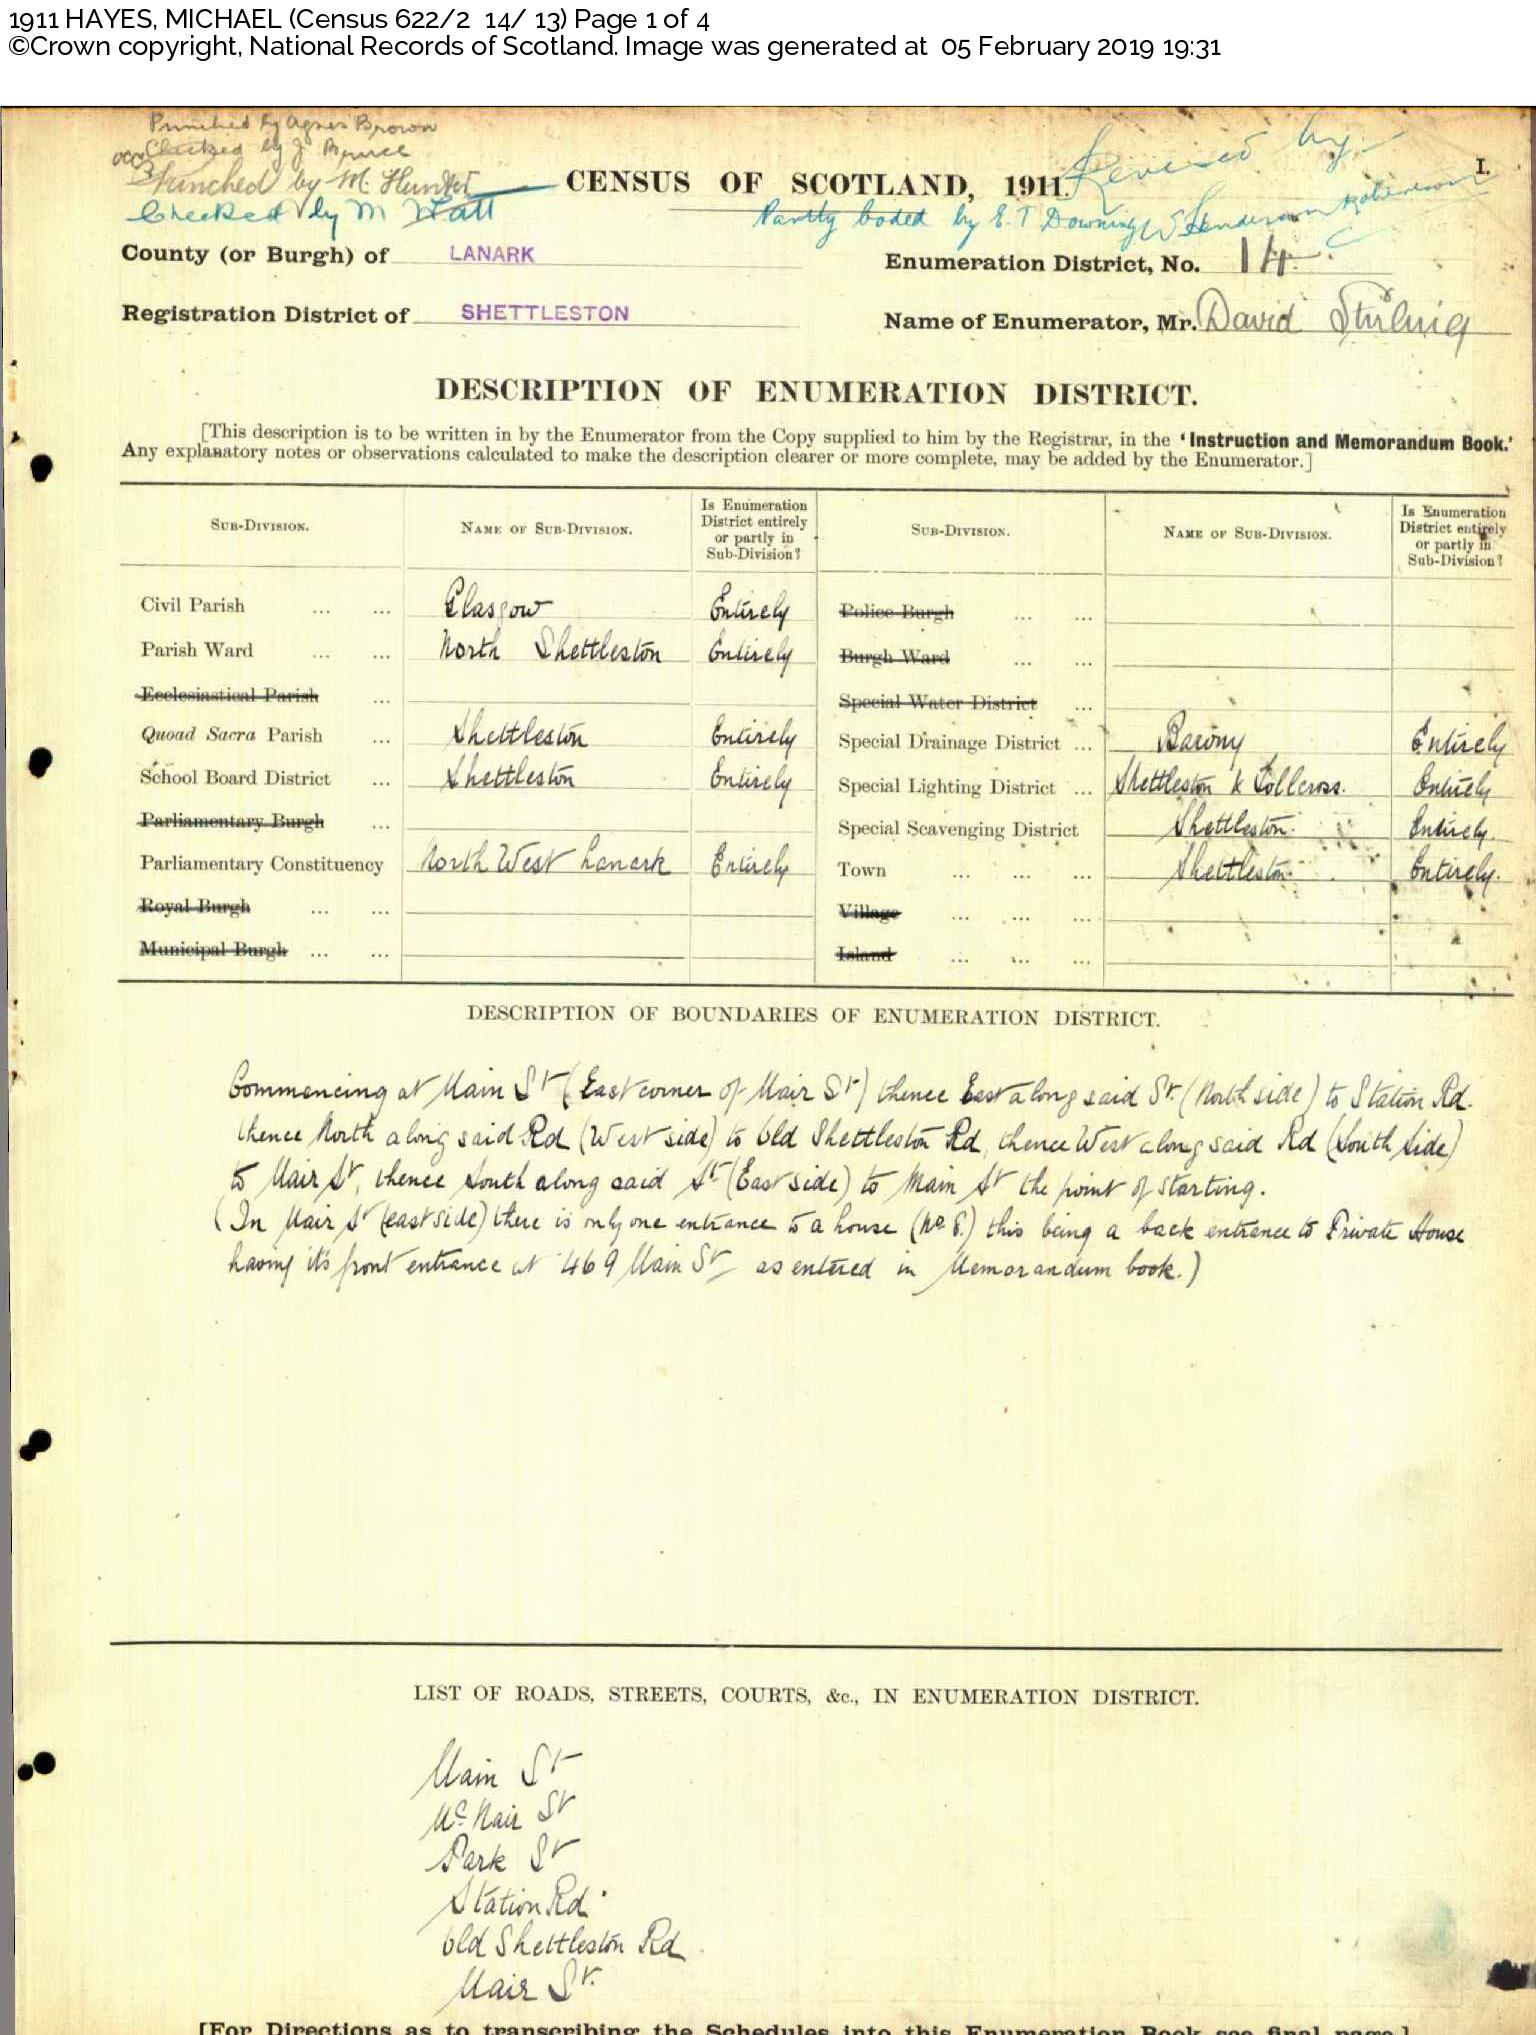 1911 HAYES, MICHAEL (Census 622/2 14/ 13) Page 1 of 4
©Crown copyright, National Records of Scotland. Image was generated at 05 February 2019 19:31
Punched by Agnes Brown
Checked by J Bruce
Punched by M. Hunter
Checked by M Watt
Revised by
I.
CENSUS OF SCOTLAND, 1911.
Partly Coded by E. T Downing W S Henderson Robertson
County (or Burgh) of LANARK
Enumeration District, No. 14
Registration District of SHETTLESTON
Name of Enumerator, Mr. David Stirling
DESCRIPTION OF ENUMERATION DISTRICT.
[This description is to be written in by the Enumerator from the Copy supplied to him by the Registrar, in the 'Instruction and Memorandum Book.'
Any explanatory notes or observations calculated to make the description clearer or more complete, may be added by the Enumerator.]
SUB-DIVISION. NAME OF SUB-DIVISION. Is Enumeration District entirely or partly in Sub-Division? SUB-DIVISION. NAME OF SUB-DIVISION. Is Enumeration District entirely or partly in Sub-Division?
Civil Parish ... ... Glasgow Entirely Police Burgh ... ...
Parish Ward ... ... North Shettleston Entirely Burgh Ward ... ...
Ecclesiastical Parish ... Special Water District ...
Quoad Sacra Parish ... Shettleston Entirely Special Drainage District ... Barony Entirely
School Board District ... Shettleston Entirely Special Lighting District ... Shettleston & Tollcross. Entirely
Parliamentary Burgh ... Special Scavenging District Shettleston. Entirely.
Parliamentary Constituency North West Lanark Entirely Town ... ... ... Shettleston Entirely.
Royal Burgh ... ... Village ... ... ...
Municipal Burgh ... ... Island ... ... ...
DESCRIPTION OF BOUNDARIES OF ENUMERATION DISTRICT.
Commencing at Main St (East corner of Mair St) thence East along said St. (North side) to Station Rd.
thence North along said Rd (West side) to Old Shettleston Rd, thence West along said Rd (South Side)
to Mair St, thence South along said St (East side) to Main St the point of starting.
(In Mair St (east side) there is only one entrance to a house (No 6.) this being a back entrance to Private House
having its front entrance at 469 Main St as entered in Memorandum book.)
LIST OF ROADS, STREETS, COURTS, &c., IN ENUMERATION DISTRICT.
Main St
McNair St
Park St
Station Rd.
Old Shettleston Rd
Mair St.
[For Directions as to transcribing the Schedules into this Enumeration Book see final page.]